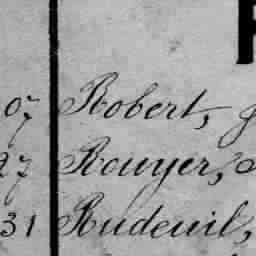 07 Robert,
27 Rouyer,
31 Rudeuil,